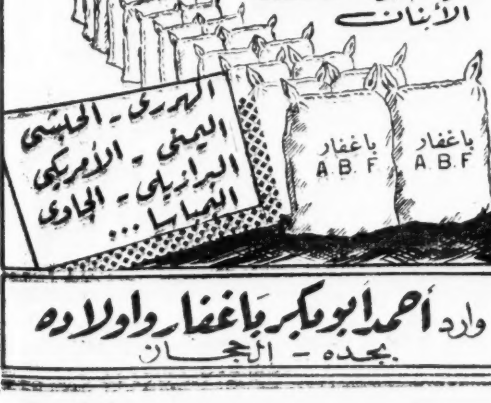 الأبنان
الهررى - الحبشى
اليمنى - الأمريكى
البرازيلى - الجاوى
الممباسا ...
باغفار
A.B.F
باغفار
A.B.F
وارد أحمد أبو بكر باغفار واولاده
بجده - الحجاز